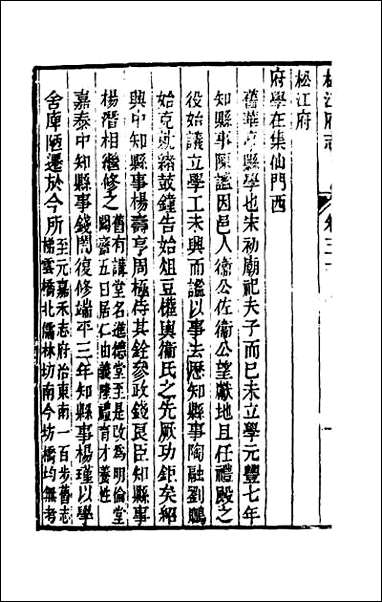 松江府志
卷三十
松江府
府學在集仙門西
舊華亭縣學也宋初廟祀夫子而已未立學元豐七年
知縣事陳謐因邑人衞公佐衞公望獻地且任禮殿之
役始議立學工未興而謐以事去歷知縣事陶融劉鵬
始克就緒鼓鐘告始俎豆權輿衞氏之先厥功鉅矣紹
興中知縣事楊壽亨周極侍其銓參政錢良臣知縣事
楊潛相繼修之舊有講堂名進德堂至是改為明倫堂
闢齋五曰居仁由義隆禮育才養性
嘉泰中知縣事錢閎復修端平三年知縣事楊瑾以學
舍庳陋遷於今所至元嘉禾志府治東南一百步舊志
梯雲橋北儒林坊南今坊橋均無考